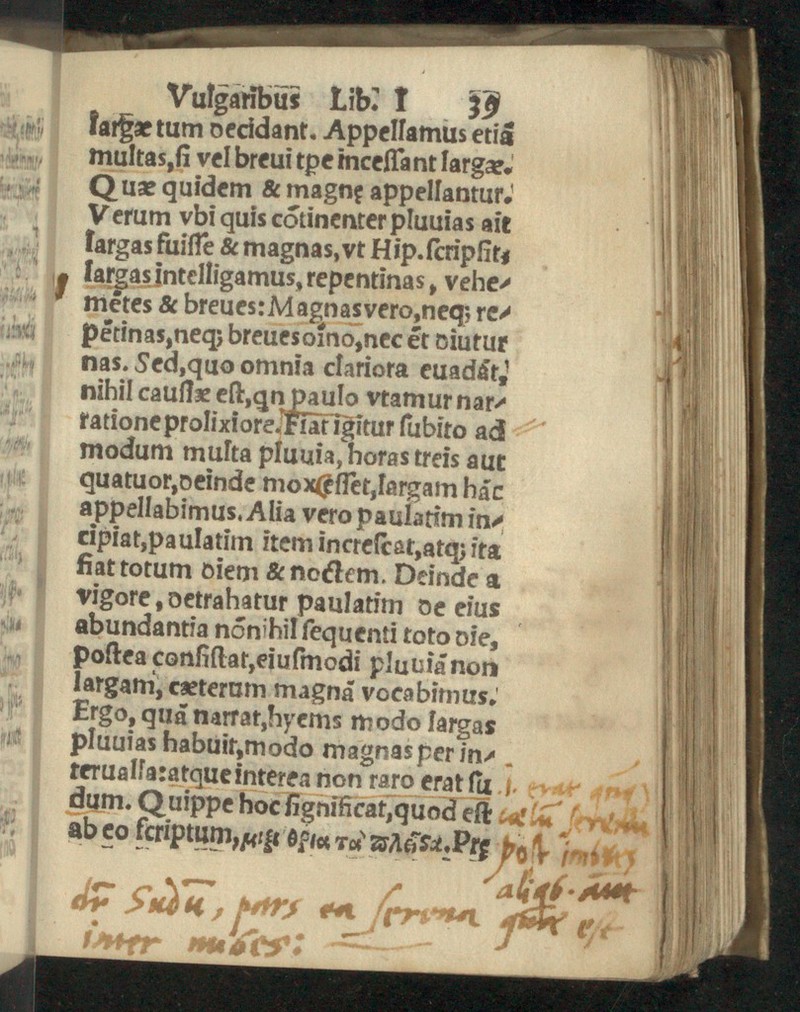 Vulgaribus Lib. I 39
largæ tum decidant. Appellamus etiā
multas, ſi vel breui tpe inceſſant largæ.
Quæ quidem & magnę appellantur.
Verum vbi quis cōtinenter pluuias ait
largas fuiſſe & magnas, vt Hip. ſcripſit,
largas intelligamus, repentinas, vehe-
mētes & breues: Magnas vero, neq; re-
pētinas, neq; breues oīno, nec ēt diutur
nas. Sed, quo omnia clariora euadāt,
nihil cauſſæ eſt, qn paulo vtamur nar-
ratione prolixiore. Fiat igitur ſubito ad
modum multa pluuia, horas treis aut
quatuor, deinde mox ceſſet, largam hāc
appellabimus. Alia vero paulatim in-
cipiat, paulatim item increſcat, atq; ita
fiat totum diem & noctem. Deinde a
vigore, detrahatur paulatim de eius
abundantia nōnihil ſequenti toto die,
poſtea conſiſtat, eiuſmodi pluuiā non
largam, cæterum magnā vocabimus.
Ergo, quā narrat, hyems modo largas
pluuias habuit, modo magnas per in-
terualla: atque interea non raro erat ſu
dum. Quippe hoc ſignificat, quod eſt
ab eo ſcriptum, τὰ πλεῖστα. Prę
j. erat
cælū
poſt imbres
aliq
dr Sudū, pars ea ſerena quæ eſt
inter nubes: